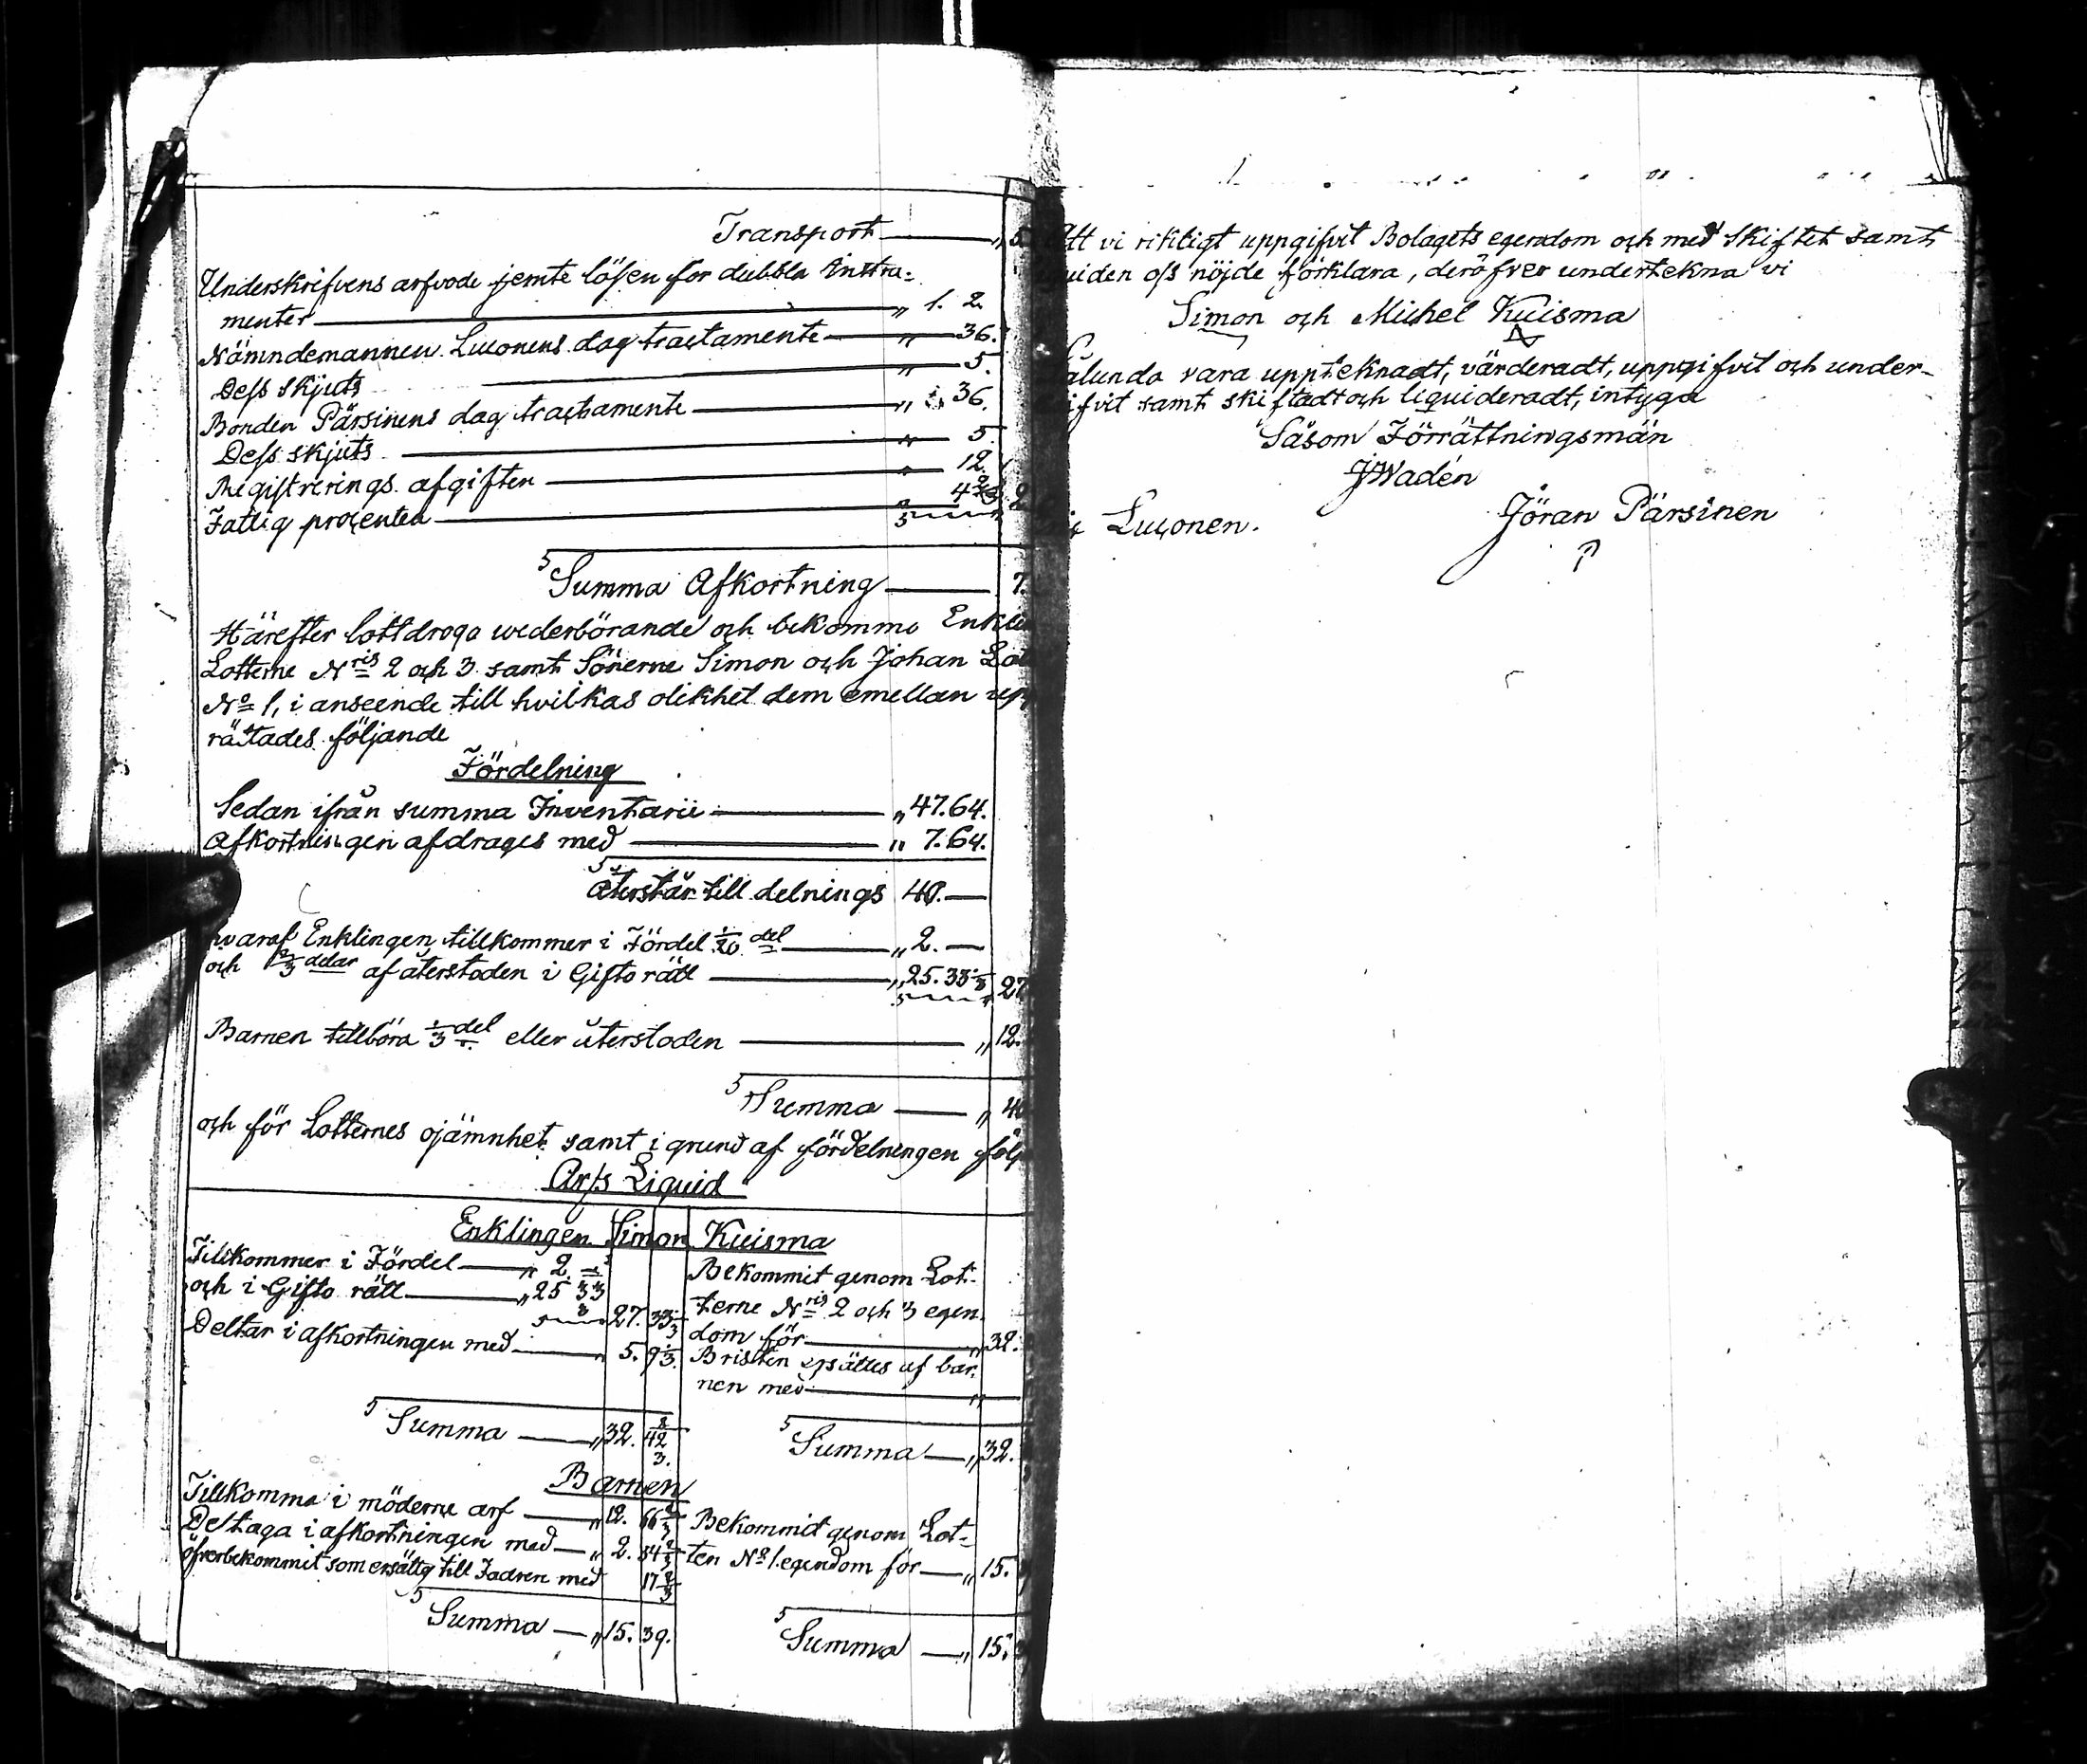 Transport — „ 5
Underskrifvens arfvode jemte lösen för dubbla Instru-
menter — „ 1. 2.
Nämndemannen Luconens dag tractamente — „ 36.
Dess skjuts — „ 5.
Bonden Pärsinens dag tractamente — „ 36.
Dess skjuts — „ 5.
Registrerings afgiften — „ 12.
Fattig procenten — 4
Summa Afkortning — 7.
Härefter lottdroga wederbörande och bekommo Enkli
Lotterne N:ris 2 och 3. samt Sönerne Simon och Johan Lot
N:o 1, i anseende till hvilkas olikhet dem emellan upp
rättades följande
Fördelning
Sedan ifrån summa Inventarii — „ 47.64.
Afkortningen afdrages med — „ 7.64.
Återstår till delnings 40. —
hvaraf Enklingen tillkommer i Fördel 1/20 del — „ 2. —
och 2/3 delar af återstoden i Gifto rätt — „ 25.33 1/3 27
Barnen tillböra 1/3 del eller återstoden — „ 12.
Summa — „ 40
och för Lotternes ojämnhet samt i grund af fördelningen följ
Arfs Liquid
Enklingen Simon Kuisma
Tillkommer i Fördel — „ 2. —
och i Gifto rätt — „ 25 33
27. 33 1/3
Deltar i afkortningen med — „ 5. 9 1/3.
Summa — „ 32. 42 2/3.
Bekommit genom Lot-
terne N:ris 2 och 3 egen
dom för — „ 32.
Bristen ersättes af bar-
nen med — „
Summa — „ 32.
Barnen
Tillkomma i möderne arf — „ 12. 66 2/3
Deltaga i afkortningen med — „ 2. 54 2/3
öfverbekommit som ersättes till Fadren med 17 2/3
Summa — „ 15. 39.
Bekommit genom Lot-
ten N:o 1. egendom för — „ 15.
Summa — „ 15.
Att vi riktigt uppgifvit Bolagets egendom och med skiftet samt
quiden oss nöjde förklara, deröfver undertekna vi
Simon och Michel Kuisma
alunda vara uppteknadt, värderadt, uppgifvit och under-
ifvit samt skiftadt och liquideradt, intyga
Såsom Förrättningsmän
J Wadén
Luconen. Jöran Pärsinen